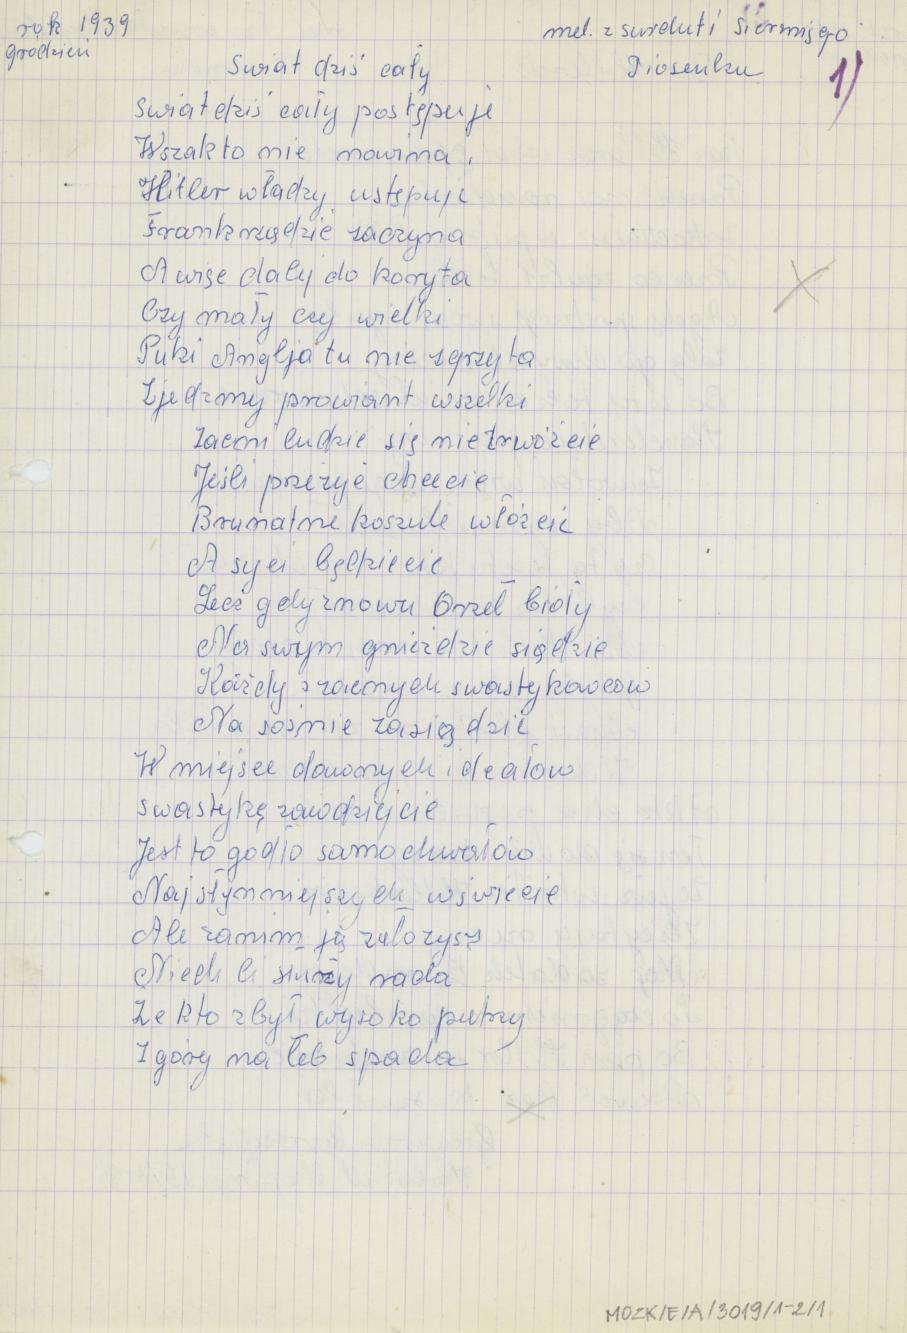 rok 1939
grodzień
mel. z surduti siermięgo
Piosenka
1)
Swiat dziś cały
Swiat dziś cały postępuje
Wszak to nie nowina,
Hitler władzy ustępuje
Frank rządzić zaczyna
A więc dalij do koryta
Czy mały czy wielki
Puki Anglja tu nie zgrzyta
Zjedzmy prowiant wszelki
Zacni ludzie się nie trwóżcie
Jeśli przeżyć chcecie
Brunatne koszule włóżcie
A syci będziecie
Lecz gdy znowu Orzeł biały
Na swym gnieździe siędzie
Każdy z zacnych swastykowców
Na sośnie zasiądzie
W miejsce dawnych ideałow
swastykę zawdziejcie
Jest to godło samochwałów
Najsłynniejszych w świecie
Ale zanim ją założysz
Niech Ci służy rada
Ze kto zbyt wysoko patrzy
Z góry na łeb spada
MOZK/E/A/3019/1-2/1